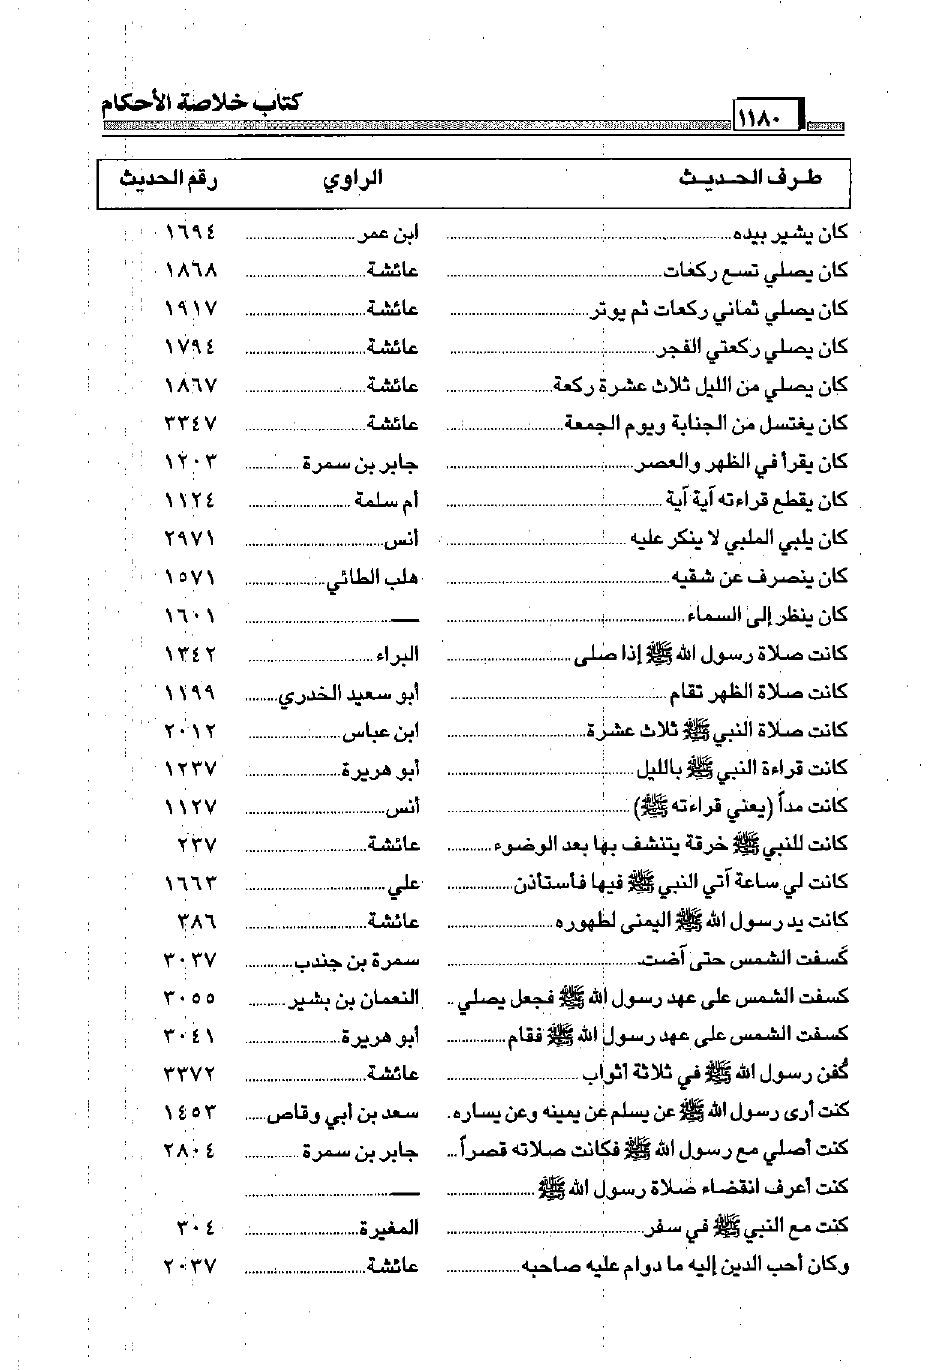 ١١٨٠ كتاب خلاصة الأحكام
طرف الحديث الراوي رقم الحديث
كان يشير بيده ابن عمر ١٦٩٤
كان يصلي تسع ركعات عائشة ١٨٦٨
كان يصلي ثماني ركعات ثم يوتر عائشة ١٩١٧
كان يصلي ركعتي الفجر عائشة ١٧٩٤
كان يصلي من الليل ثلاث عشرة ركعة عائشة ١٨٦٧
كان يغتسل من الجنابة ويوم الجمعة عائشة ٣٣٤٧
كان يقرأ في الظهر والعصر جابر بن سمرة ١٢٠٣
كان يقطع قراءته آية آية أم سلمة ١١٢٤
كان يلبي الملبي لا ينكر عليه أنس ٢٩٧١
كان ينصرف عن شقيه هلب الطائي ١٥٧١
كان ينظر إلى السماء — ١٦٠١
كانت صلاة رسول الله ﷺ إذا صلى البراء ١٣٤٢
كانت صلاة الظهر تقام أبو سعيد الخدري ١١٩٩
كانت صلاة النبي ﷺ ثلاث عشرة ابن عباس ٢٠١٢
كانت قراءة النبي ﷺ بالليل أبو هريرة ١٢٣٧
كانت مداً (يعني قراءته ﷺ) أنس ١١٢٧
كانت للنبي ﷺ خرقة يتنشف بها بعد الوضوء عائشة ٢٣٧
كانت لي ساعة آتي النبي ﷺ فيها فأستأذن علي ١٦٦٣
كانت يد رسول الله ﷺ اليمنى لطهوره عائشة ٣٨٦
كَسفت الشمس حتى آضت سمرة بن جندب ٣٠٣٧
كسفت الشمس على عهد رسول الله ﷺ فجعل يصلي .. النعمان بن بشير ٣٠٥٥
كسفت الشمس على عهد رسول الله ﷺ فقام أبو هريرة ٣٠٤١
كُفن رسول الله ﷺ في ثلاثة أثواب عائشة ٣٣٧٢
كنت أرى رسول الله ﷺ عن يسلم عن يمينه وعن يساره. سعد بن أبي وقاص ١٤٥٣
كنت أصلي مع رسول الله ﷺ فكانت صلاته قصراً... جابر بن سمرة ٢٨٠٤
كنت أعرف انقضاء صلاة رسول الله ﷺ —
كنت مع النبي ﷺ في سفر المغيرة ٣٠٤
وكان أحب الدين إليه ما دوام عليه صاحبه عائشة ٢٠٣٧